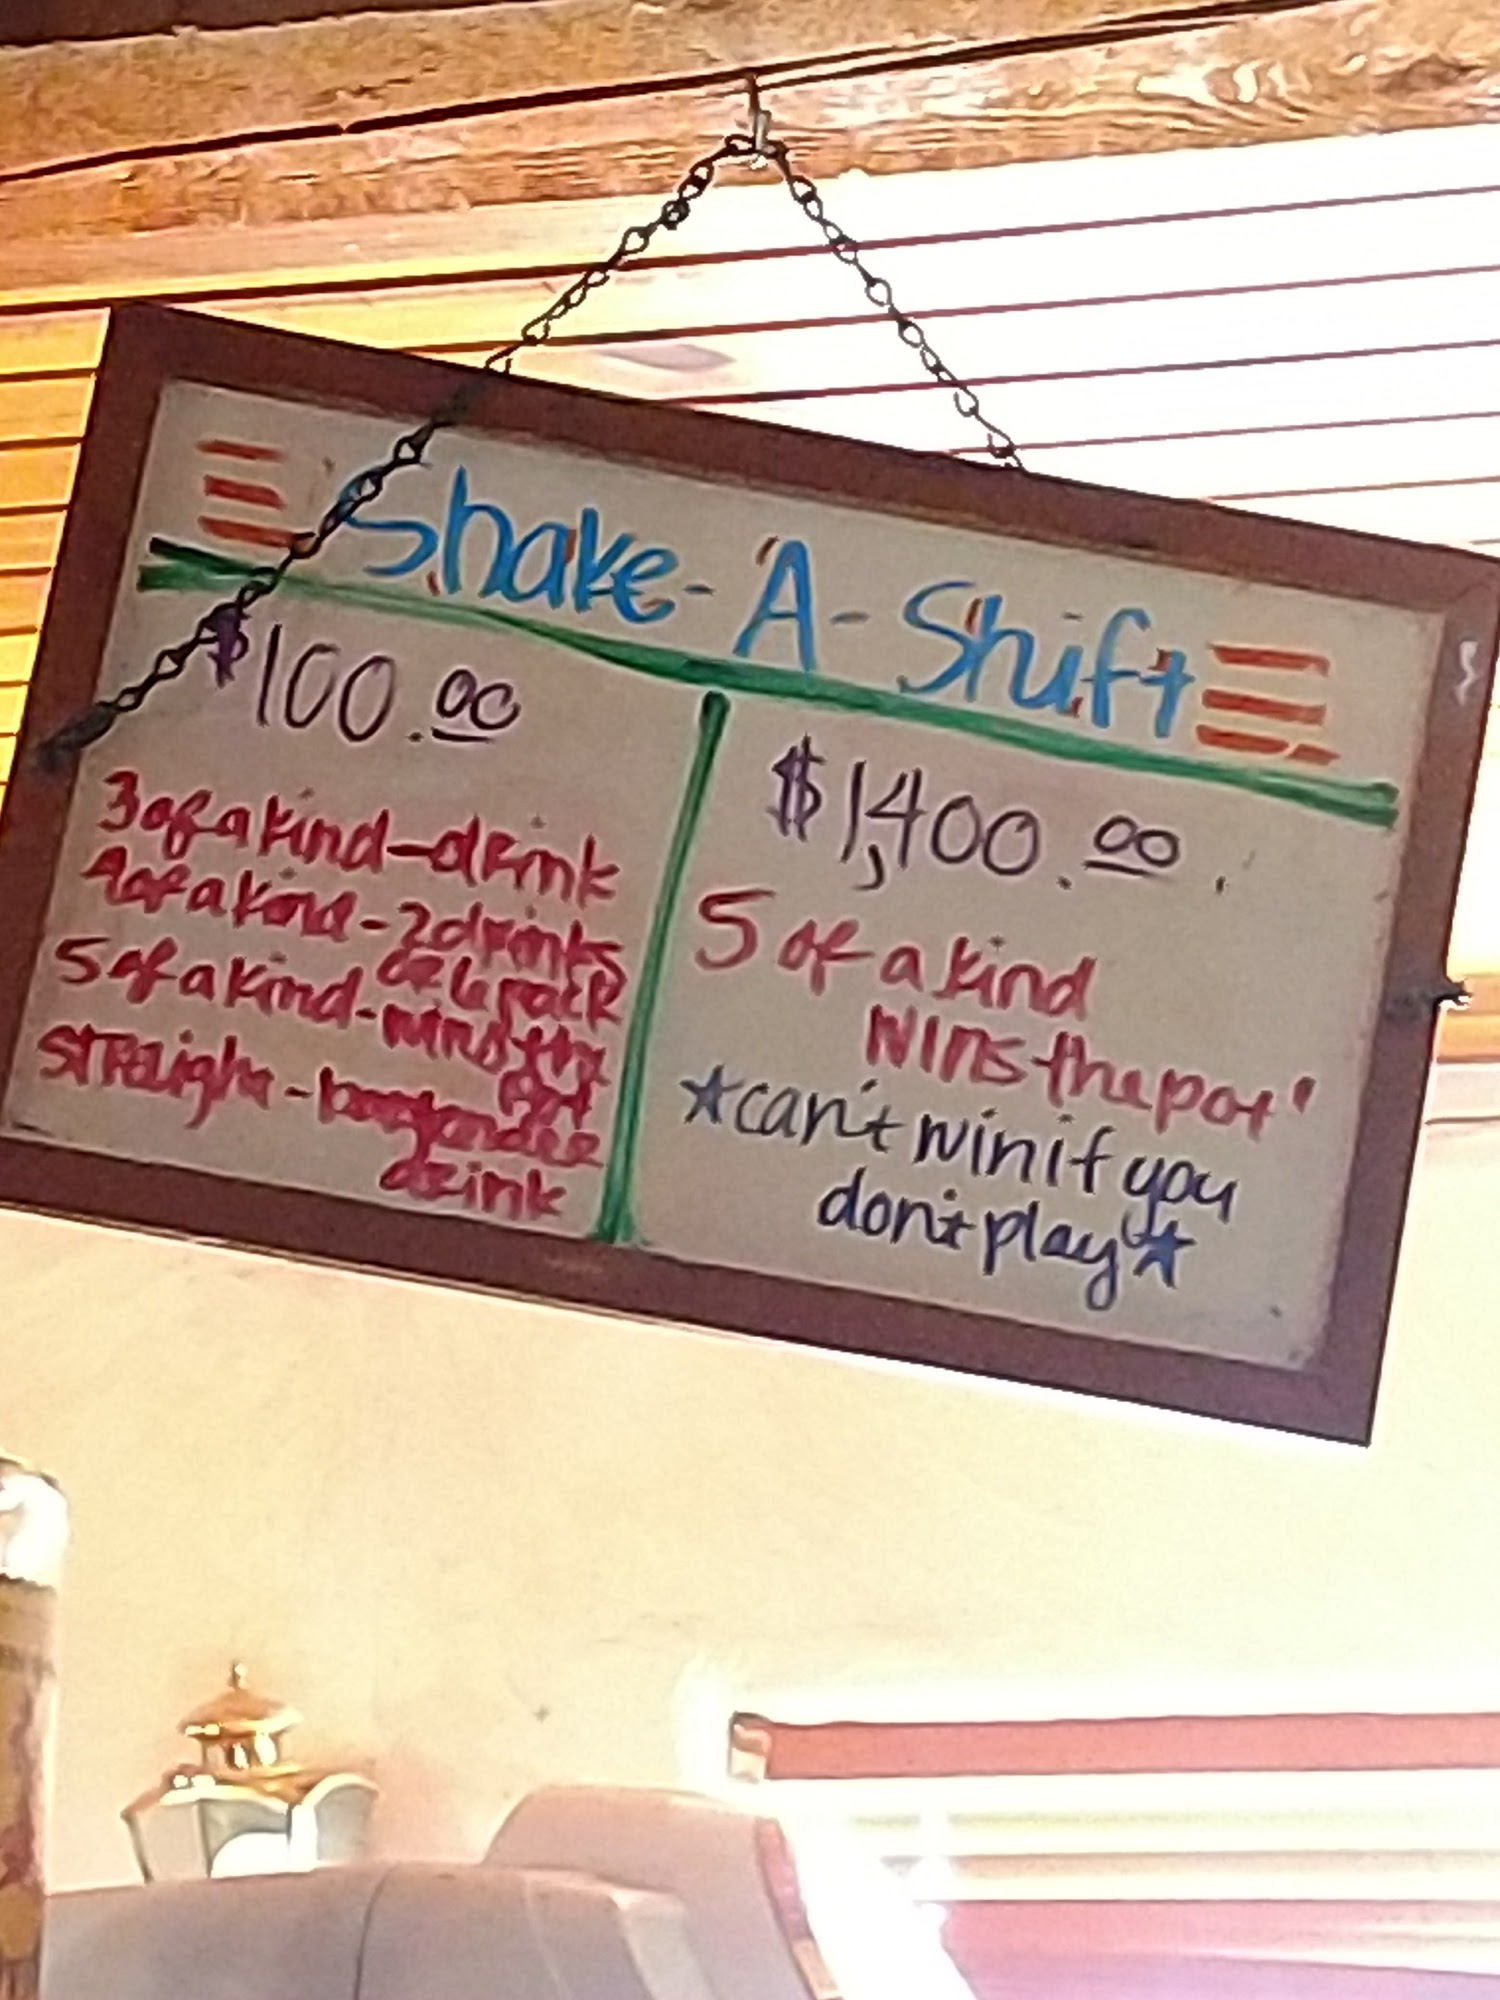 Shake-A-Shift
$100.00
3 of a kind-drink
4 of a kind-2 drinks
or 6 pack
5 of a kind-wins the
pot
straight-bartender
drink
$1,400.00
5 of a kind
wins the pot!
★can't win if you
don't play★